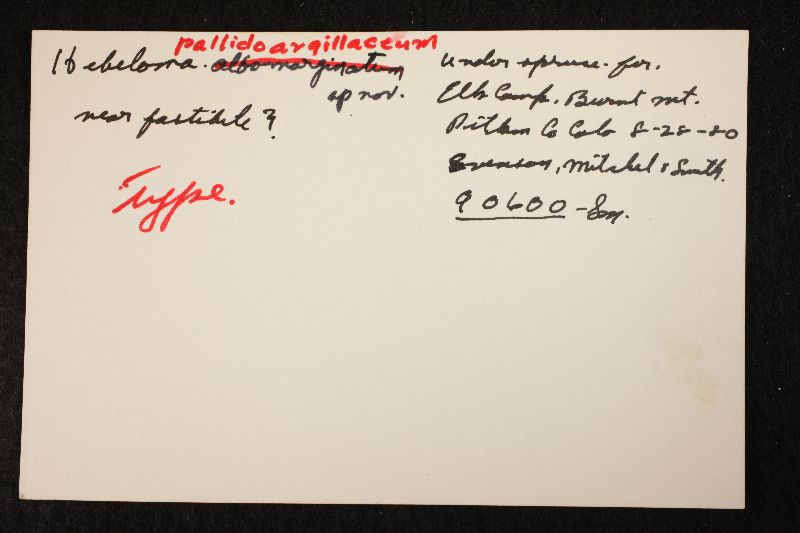 pallidoargillaceum
Hebeloma albomarginatum
sp nov.
near fastibile?
Type.
under spruce. for.
Elk Camp, Burnt mt.
Pitkin Co Colo 8-28-80
Evenson, Mitchel & Smith.
90600-Sm.